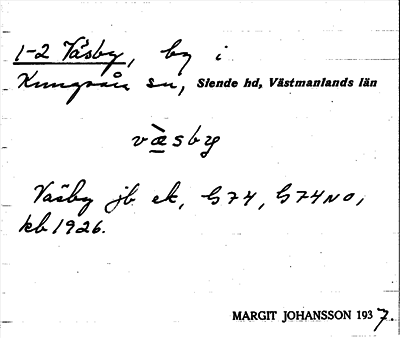 1-2 Väsby, by i
Kungsåra sn, Siende hd, Västmanlands län
vä̀sby
Väsby jb ek, G74, G74NO,
kb 1926.
MARGIT JOHANSSON 1937.